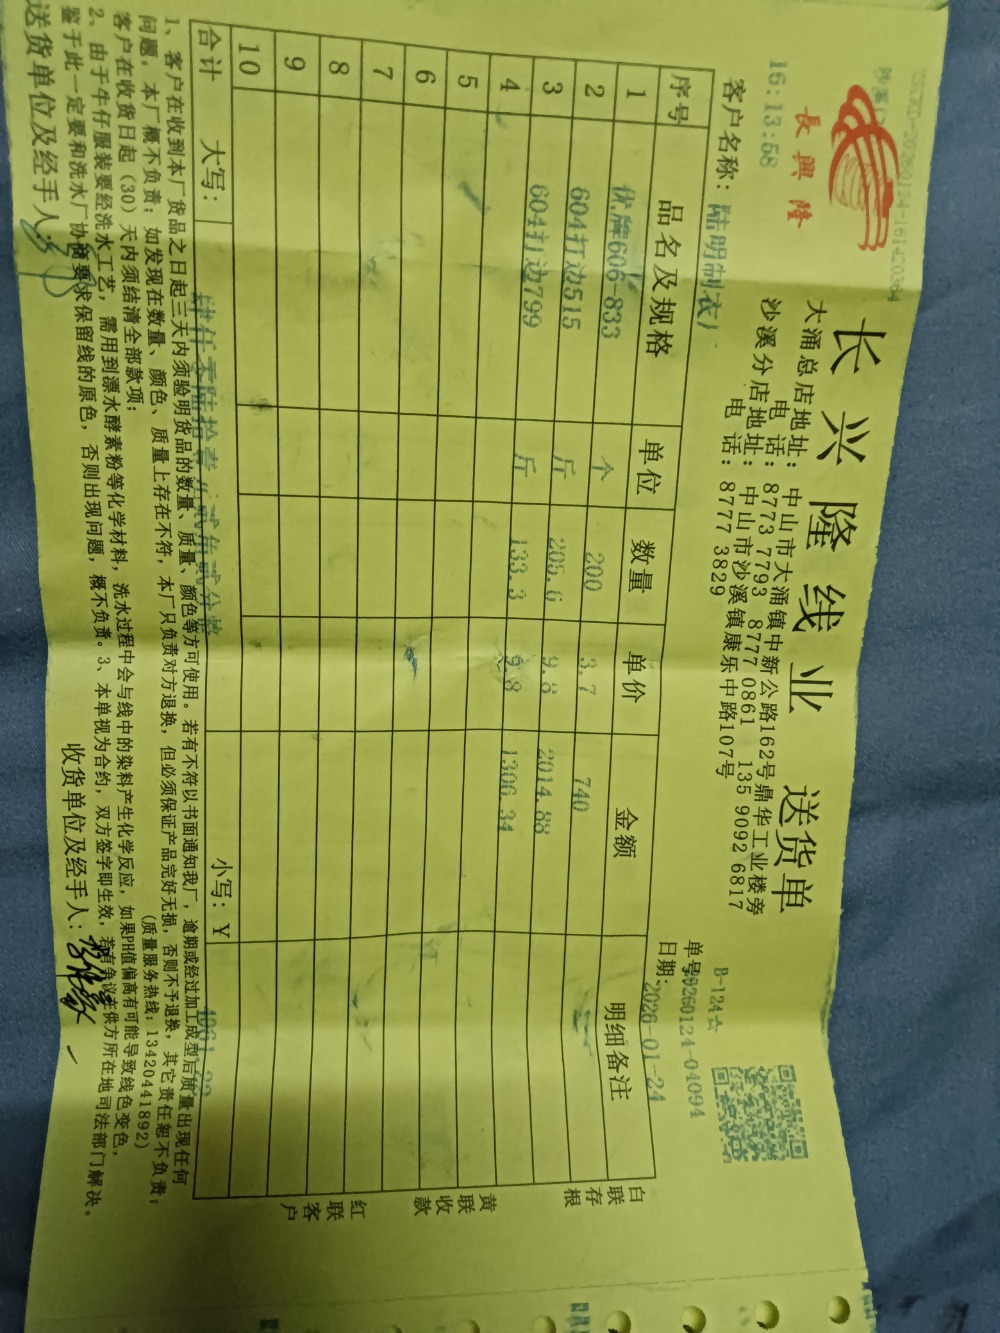 長興隆
16:13:58
长兴隆线业 送货单
大涌总店地址：中山市大涌镇中新公路162号鼎华工业楼旁
电话：8773 7793 8777 0861 135 9092 6817
沙溪分店地址：中山市沙溪镇康乐中路107号
电话：8777 3829
B-124☆
单号20260124-04094
客户名称：陆明制衣厂
日期：2026-01-24
序号 品名及规格 单位 数量 单价 金额 明细备注
1 优牌606-833 个 200 3.7 740
2 604打边515 斤 205.6 9.8 2014.88
3 604打边799 斤 133.3 9.8 1306.34
4
5
6
7
8
9
10
合计 大写： 肆仟零陆拾壹元贰角贰分整 小写：￥ 4061.22
白联存根
黄联收款
红联客户
1、客户在收到本厂货品之日起三天内须验明货品的数量、质量、颜色等方可使用。若有不符以书面通知我厂，逾期或经过加工成型后质量出现任何
问题，本厂概不负责；如发现在数量、颜色、质量上存在不符，本厂只负责对方退换，但必须保证产品完好无损，否则不予退换，其它责任恕不负责；
客户在收货日起（30）天内须结清全部款项；（质量服务热线：13420441892）
2、由于牛仔服装要经洗水工艺，需用到漂水酵素粉等化学材料，洗水过程中会与线中的染料产生化学反应，如果PH值偏高有可能导致线色变色，
鉴于此一定要和洗水厂协商要求保留线的原色，否则出现问题，概不负责。3、本单视为合约，双方签字即生效，若有争议在供方所在地司法部门解决。
送货单位及经手人：
收货单位及经手人：